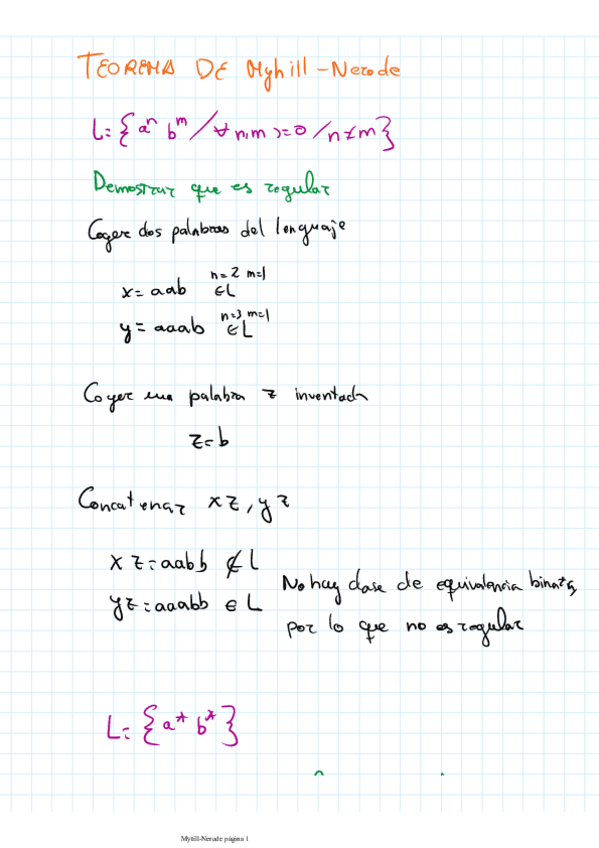 TEOREMA DE Myhill-Nerode
L = { aⁿ bᵐ / ∀ n,m >= 0 / n ≠ m }
Demostrar que es regular
Coger dos palabras del lenguaje
n=2 m=1
x = aab ∈ L
n=3 m=1
y = aaab ∈ L
Coger una palabra z inventada
z = b
Concatenar xz, yz
xz = aabb ∉ L
yz = aaabb ∈ L
No hay clase de equivalencia binaria,
por lo que no es regular
L = { a* b* }
Myhill-Nerode página 1